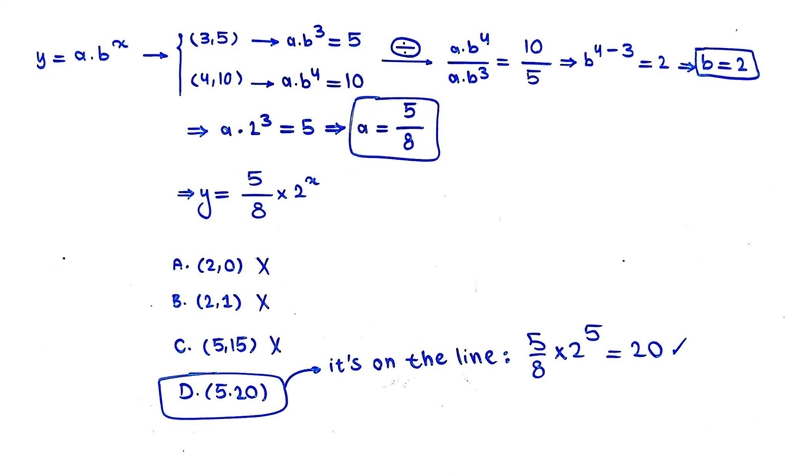 y = a.b^x → { (3,5) → a.b^3 = 5 ÷→ a.b^4 / a.b^3 = 10/5 ⇒ b^(4-3) = 2 ⇒ b = 2
(4,10) → a.b^4 = 10
⇒ a . 2^3 = 5 ⇒ a = 5/8
⇒ y = 5/8 × 2^x
A. (2,0) X
B. (2,1) X
C. (5,15) X
D. (5.20) → it's on the line: 5/8 × 2^5 = 20 ✓